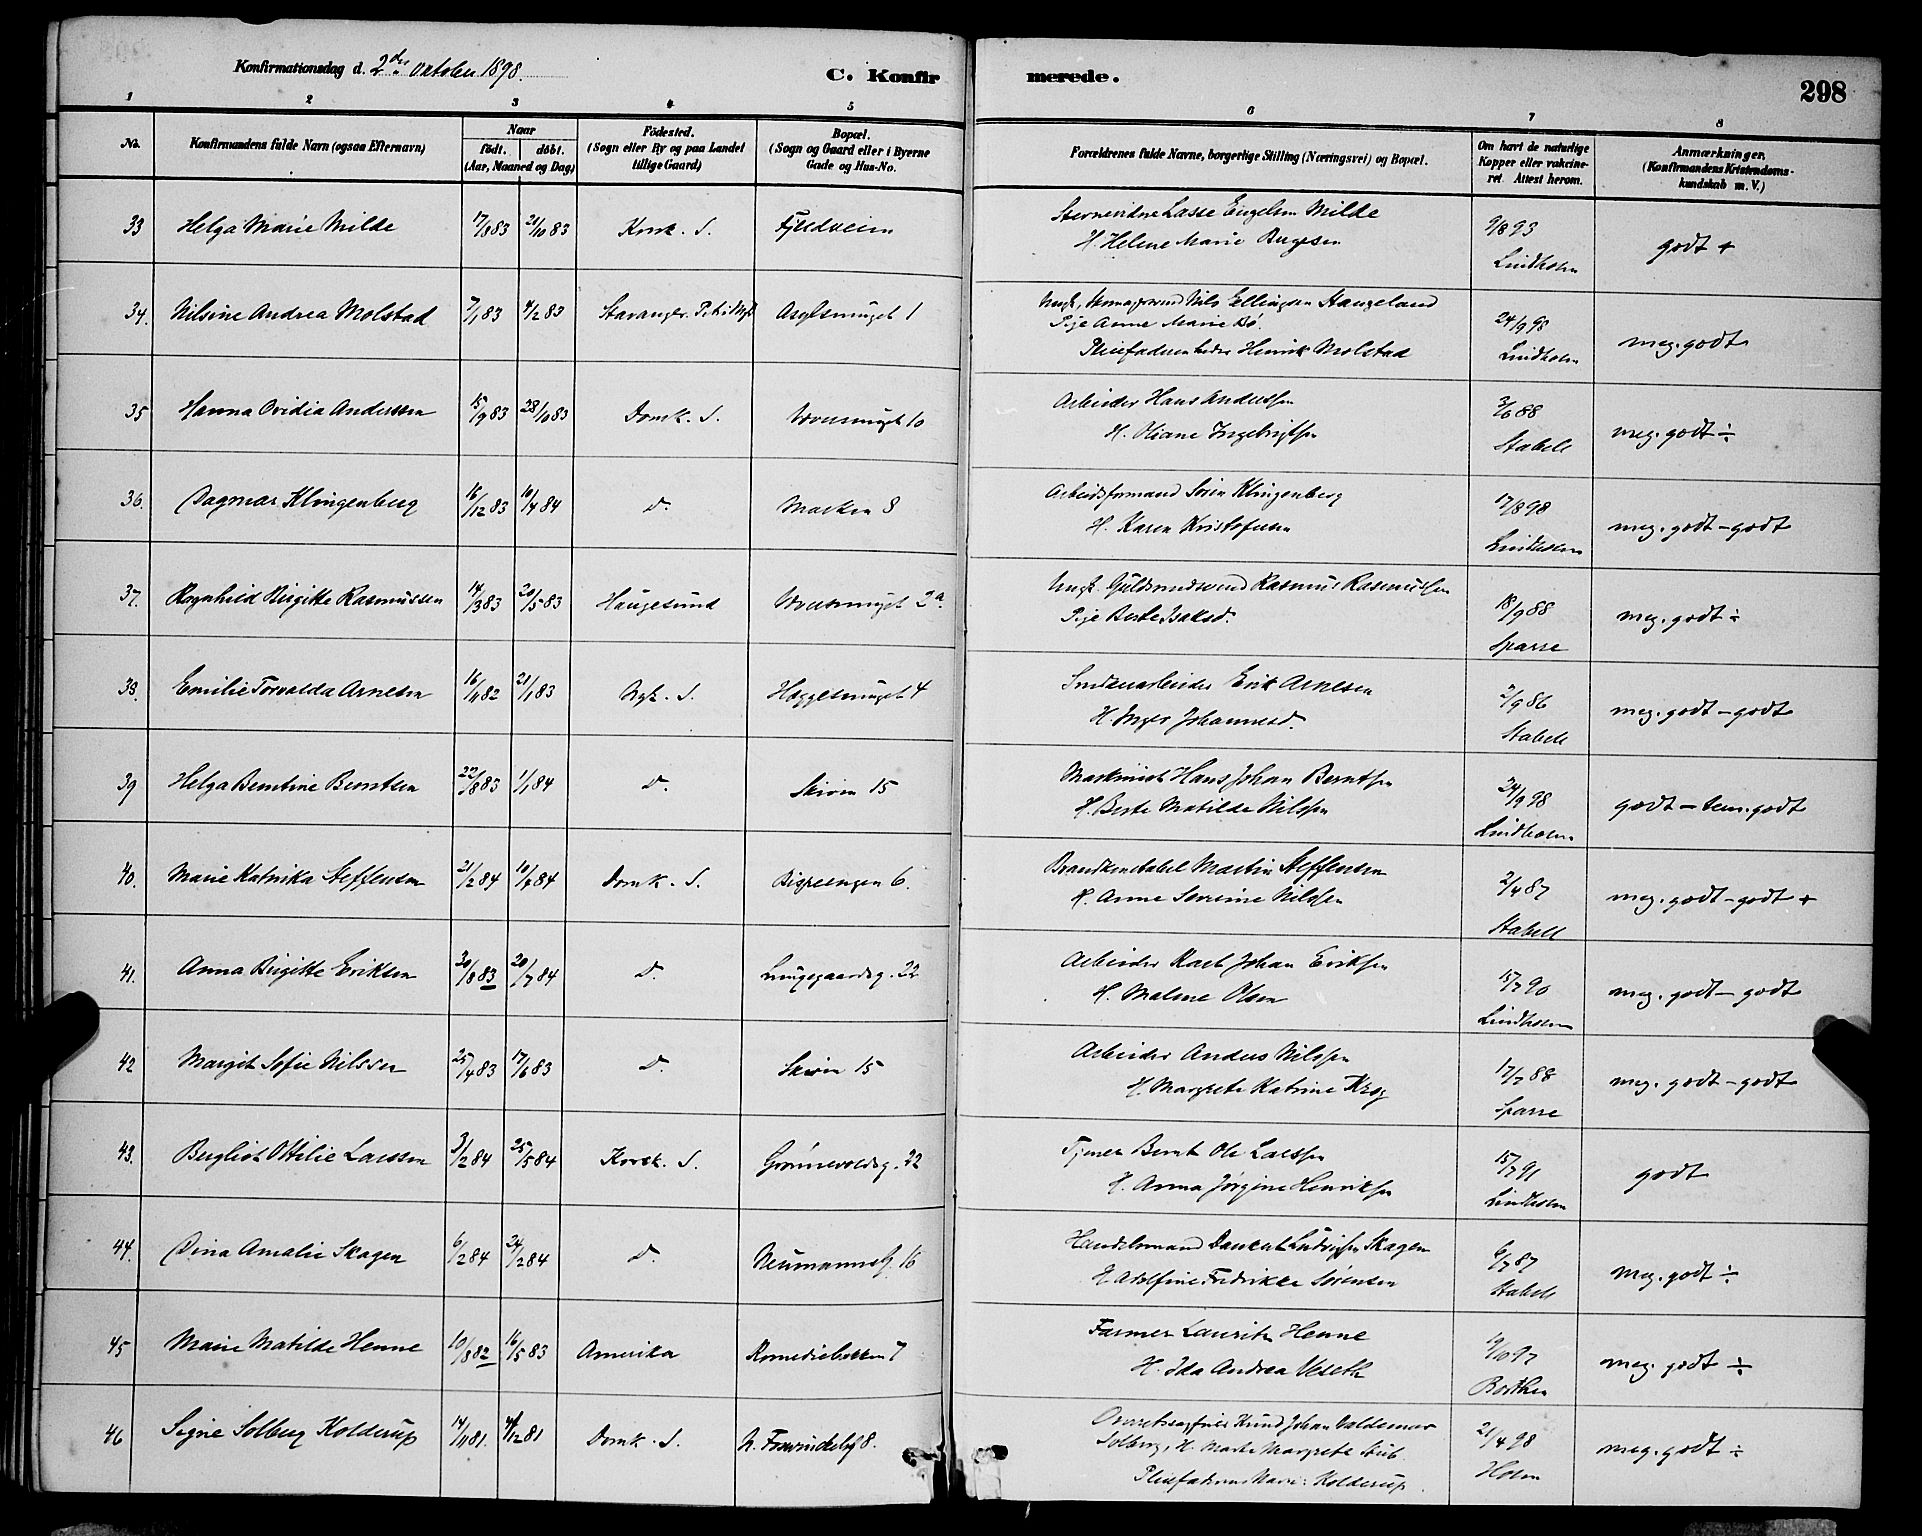 Konfirmationsdag d. 2den Oktober 1898.
C. Konfirmerede.
298
1 2 3 4 5 6 7 8
No.
Konfirmandens fulde Navn (ogsaa Efternavn)
Naar
födt. döbt.
(Aar, Maaned og Dag)
Födested.
(Sogn eller By og paa Landet
tillige Gaard)
Bopæl.
(Sogn og Gaard eller i Byerne
Gade og Hus-No.
Forældrenes fulde Navne, borgerlige Stilling (Næringsvei) og Bopæl.
Om havt de naturlige
Kopper eller vakcine-
ret Attest herom.
Anmærkninger.
(Konfirmandens Kristendoms-
kundskab m. V.)
33 Helga Marie Milde 17/8 83 21/10 83 Korsk. S. Fjeldveien
Lasse Engelsen Milde
H. Helene Marie
9/8 93
Lindholm
godt +
34. Nilsine Andrea Molstad 7/1 83 4/2 83 Stavanger Asylsmuget 1
Nils Ellingsen Haugeland
Pige Anne Marie Bø.
Henrik Molstad
24/9 98
Lindholm
meg. godt
35 Hanna Ovidia Anderssen 15/9 83 28/10 83 Domk. S. 10
Arbeider Hans Anderssen
H. Oliane Ingebrigtsen
3/6 88
Stabell
meg. godt ÷
36. Dagmar Klingenberg 16/12 83 10/4 84 D. Marken 8
Arbeidsformand Sören Klingenberg
H. Karen Kristofersen
17/8 98
Lindholm
meg. godt - godt
37. Ragnhild Birgitte Rasmussen 14/3 83 20/5 83 Haugesund 2a.
Ungk. Guldsmedsvend Rasmus Rasmussen
Pige Berte Isaksd.
18/9 88
Sparre
meg. godt ÷
38. Emilie Torvalda Arnesen 16/11 82 21/1 83 Nyk. S. Heggesmuget 4
Erik Arnesen
H. Inger Johannesd.
2/9 86
Stabell
meg. godt - godt
39 Helga Berntine Berntsen 22/8 83 1/1 84 D. Skiven 15
Maskinist Hans Johan Berntsen
H. Berte Matilde Nilssen
24/9 98
Lindholm
godt - tem. godt
40. Marie Katrika Steffensen 21/2 84 10/4 84 Domk. S. Bispeengen 6.
Brandkonstabel Martin Steffensen
H. Anne Severine Nilssen
2/4 87
Stabell
meg. godt - godt +
41. Anna Birgitte Eriksen 30/8 83 20/7 84 D. Lungegaardsg. 22
Arbeider Karl Johan Eriksen
H. Malene Olsen
15/7 90
Lindholm
meg. godt - godt
42 Margit Sofie Nilssen 25/4 83 17/6 83 D. Skiven 15
Arbeider Anders Nilssen
H. Margrete Katrine Krog
17/7 88
Sparre
meg. godt - godt
43. Bergliot Ottilie Larssen 3/2 84 25/5 84 Korsk. S. Grönnevoldsg. 22
Tjener Bernt Ole Larssen
H. Anna Jørgine Henriksen
15/7 91
Lindholm
godt
44. Dina Amalie Skagen 6/2 84 24/2 84 D. Neumannsg. 16
Handelsmand Dankert Ludvigsen Skagen
H. Adolfine Fredrikke Sørensen
6/7 87
Stabell
meg. godt ÷
45 Marie Matilde Henne 10/8 82 16/5 83 Amerika Komediebakken 7
Farmer Lauritz Henne
H. Ida Andrea Veseth
19/10 97
Borthen
meg. godt ÷
46 Signe Solberg Kolderup 14/11 81. 4/12 81 Domk. S. 8.
Knud Johan Valdemar
Solberg, H. Marte Margrete Stub
Pleiefaderens Navn: Kolderup.
21/4 98
Holm
meg. godt ÷